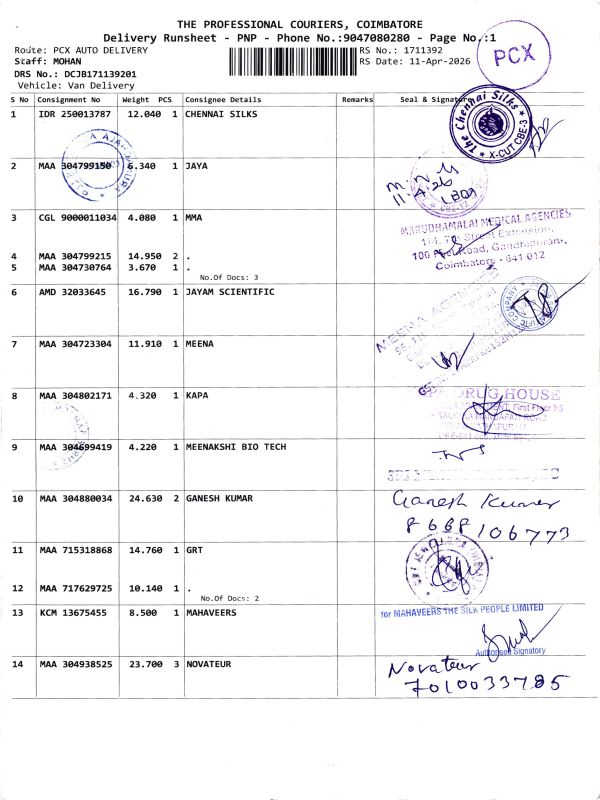 THE PROFESSIONAL COURIERS, COIMBATORE
Delivery Runsheet - PNP - Phone No.:9047080280 - Page No.:1
Route: PCX AUTO DELIVERY
RS No.: 1711392
Staff: MOHAN
RS Date: 11-Apr-2026
DRS No.: DCJB171139201
Vehicle: Van Delivery
PCX
S No Consignment No Weight PCS Consignee Details Remarks Seal & Signature
1 IDR 250013787 12.040 1 CHENNAI SILKS
The Chennai Silks
X-CUT CBE-3
2 MAA 304799150 6.340 1 JAYA
11.4.26
3 CGL 9000011034 4.080 1 MMA
MARUDHAMALAI MEDICAL AGENCIES
114, 7th Street Extension,
100 Feet Road, Gandhipuram,
Coimbatore - 641 012
4 MAA 304799215 14.950 2 .
5 MAA 304730764 3.670 1 .
No.Of Docs: 3
6 AMD 32033645 16.790 1 JAYAM SCIENTIFIC
7 MAA 304723304 11.910 1 MEENA
MEENA AGENCIES
8 MAA 304802171 4.320 1 KAPA
DRUG HOUSE
First Floor
9 MAA 304699419 4.220 1 MEENAKSHI BIO TECH
10 MAA 304880034 24.630 2 GANESH KUMAR
Ganesh Kumar
8688106773
11 MAA 715318868 14.760 1 GRT
12 MAA 717629725 10.140 1 .
No.Of Docs: 2
13 KCM 13675455 8.500 1 MAHAVEERS
for MAHAVEERS THE SILK PEOPLE LIMITED
Authorised Signatory
14 MAA 304938525 23.700 3 NOVATEUR
Novateur
7010033785